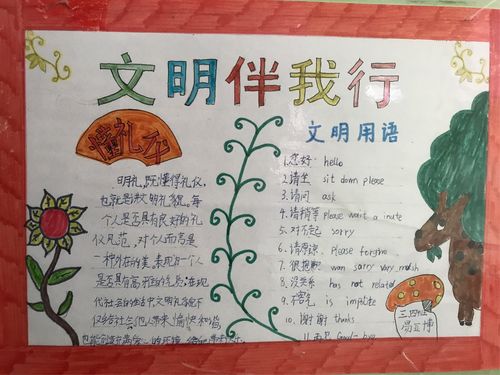 文明伴我行
懂礼仪
明礼,既懂得礼仪,
也就是讲文明礼貌,每
个人是否具有良好的礼
仪风范,对个人而言是
一种外在的美,表现为一个人
是否具有高
代社会的生活中文明礼貌不
仅给社会,他人带来愉快和谐,
文明用语
1.您好 hello
2.请坐 sit down please
3.请问 ask
4.请稍等 please wait a
5.对不起 sorry
6.请原谅 please forgive
7.很抱歉 sorry very
8.没关系 has not related
9.不客气 is impolite
10.谢谢 thanks
11.再见 Good-bye